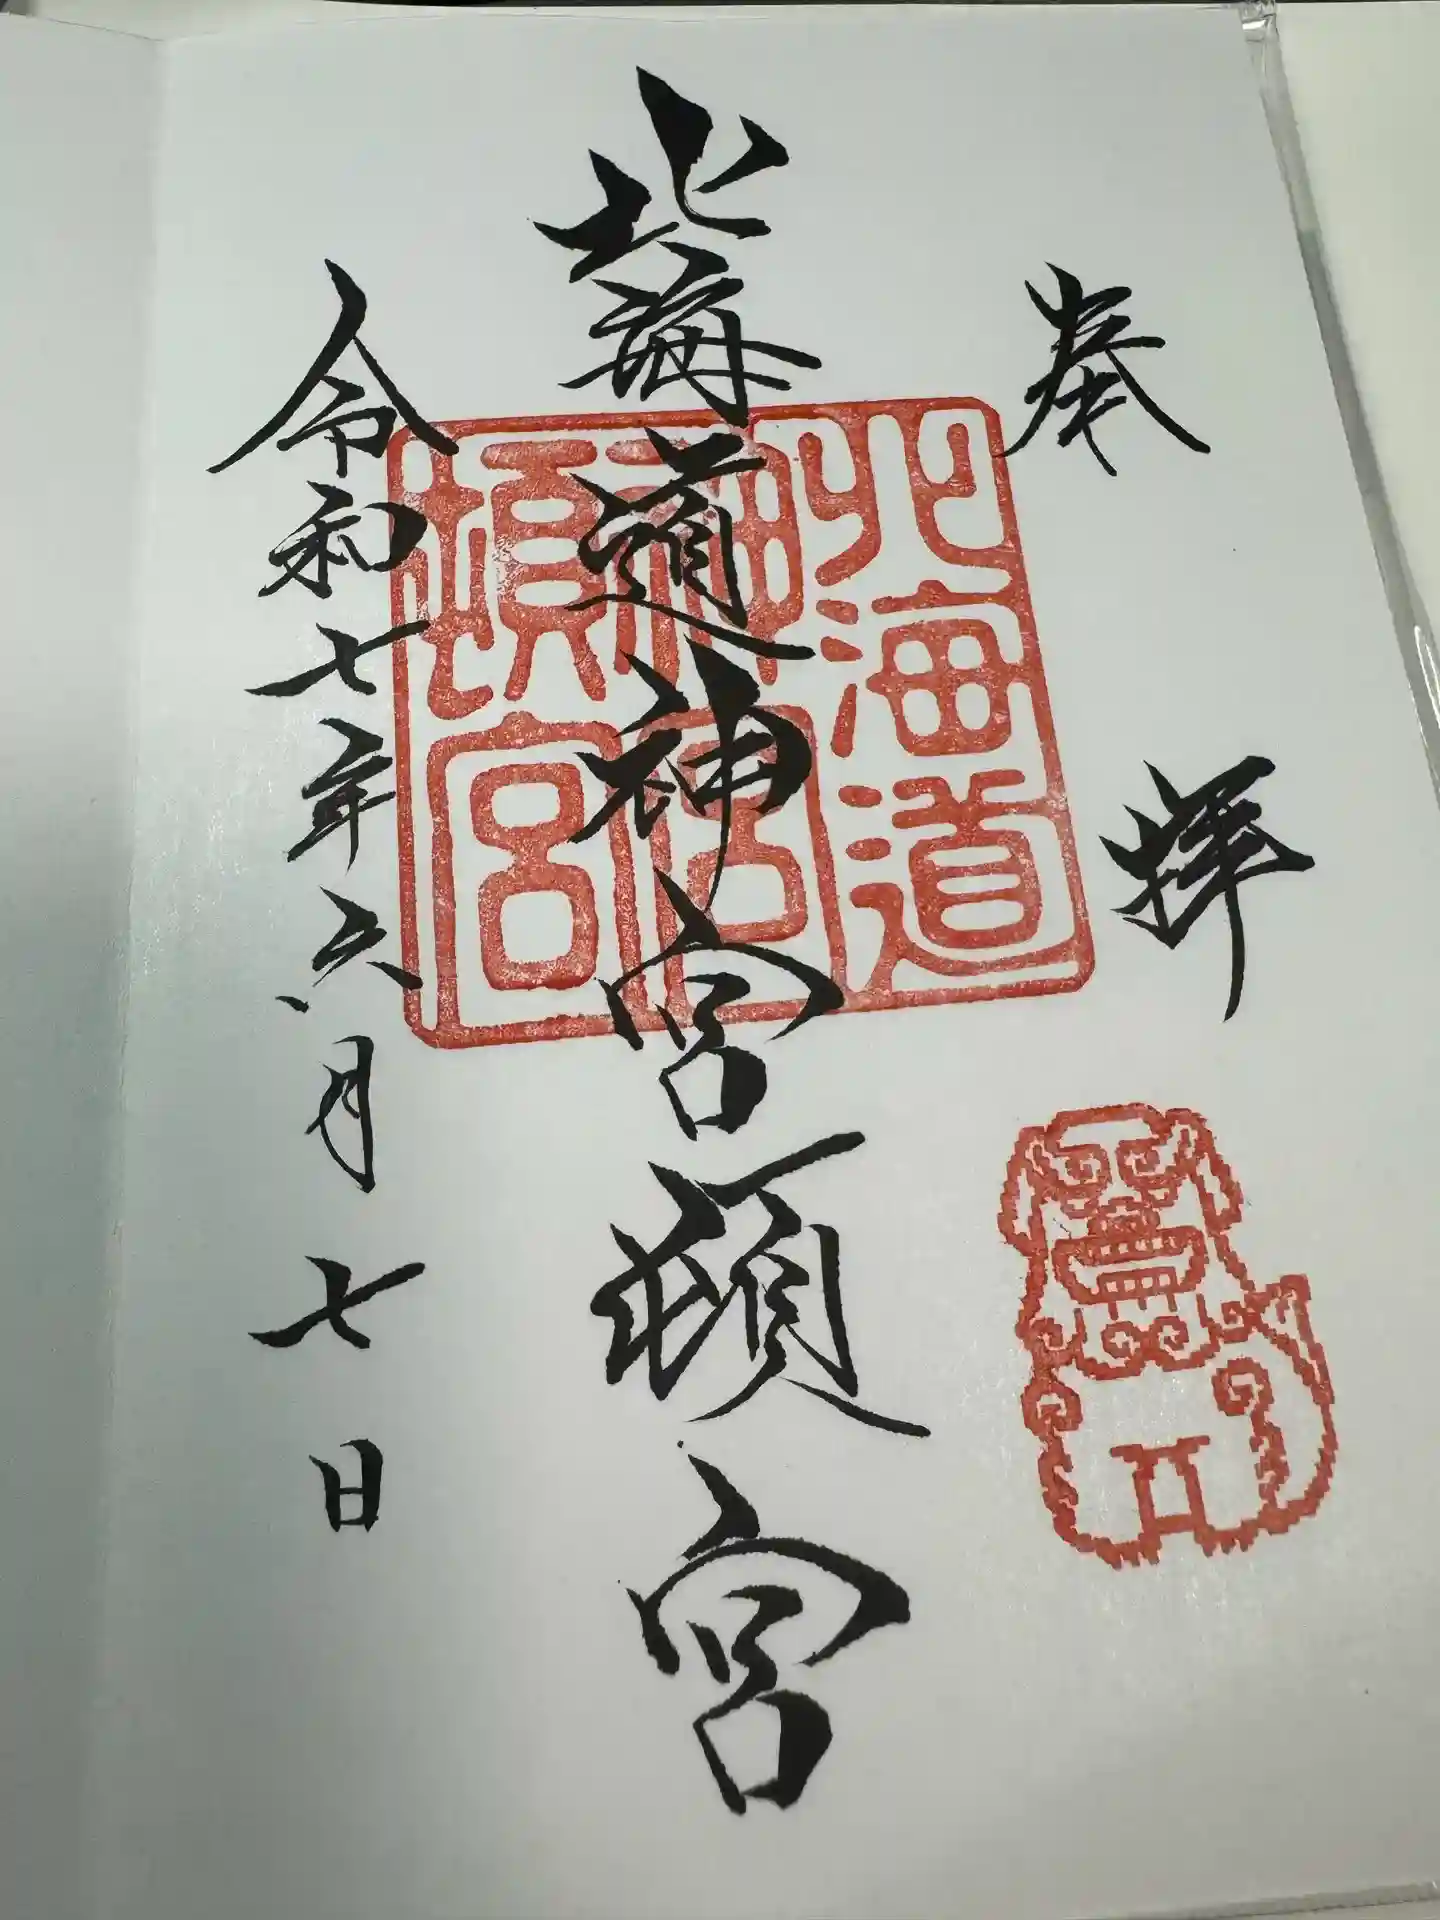 奉拝
北海道神宮頓宮
令和七年六月七日
北海道
神宮
頓宮